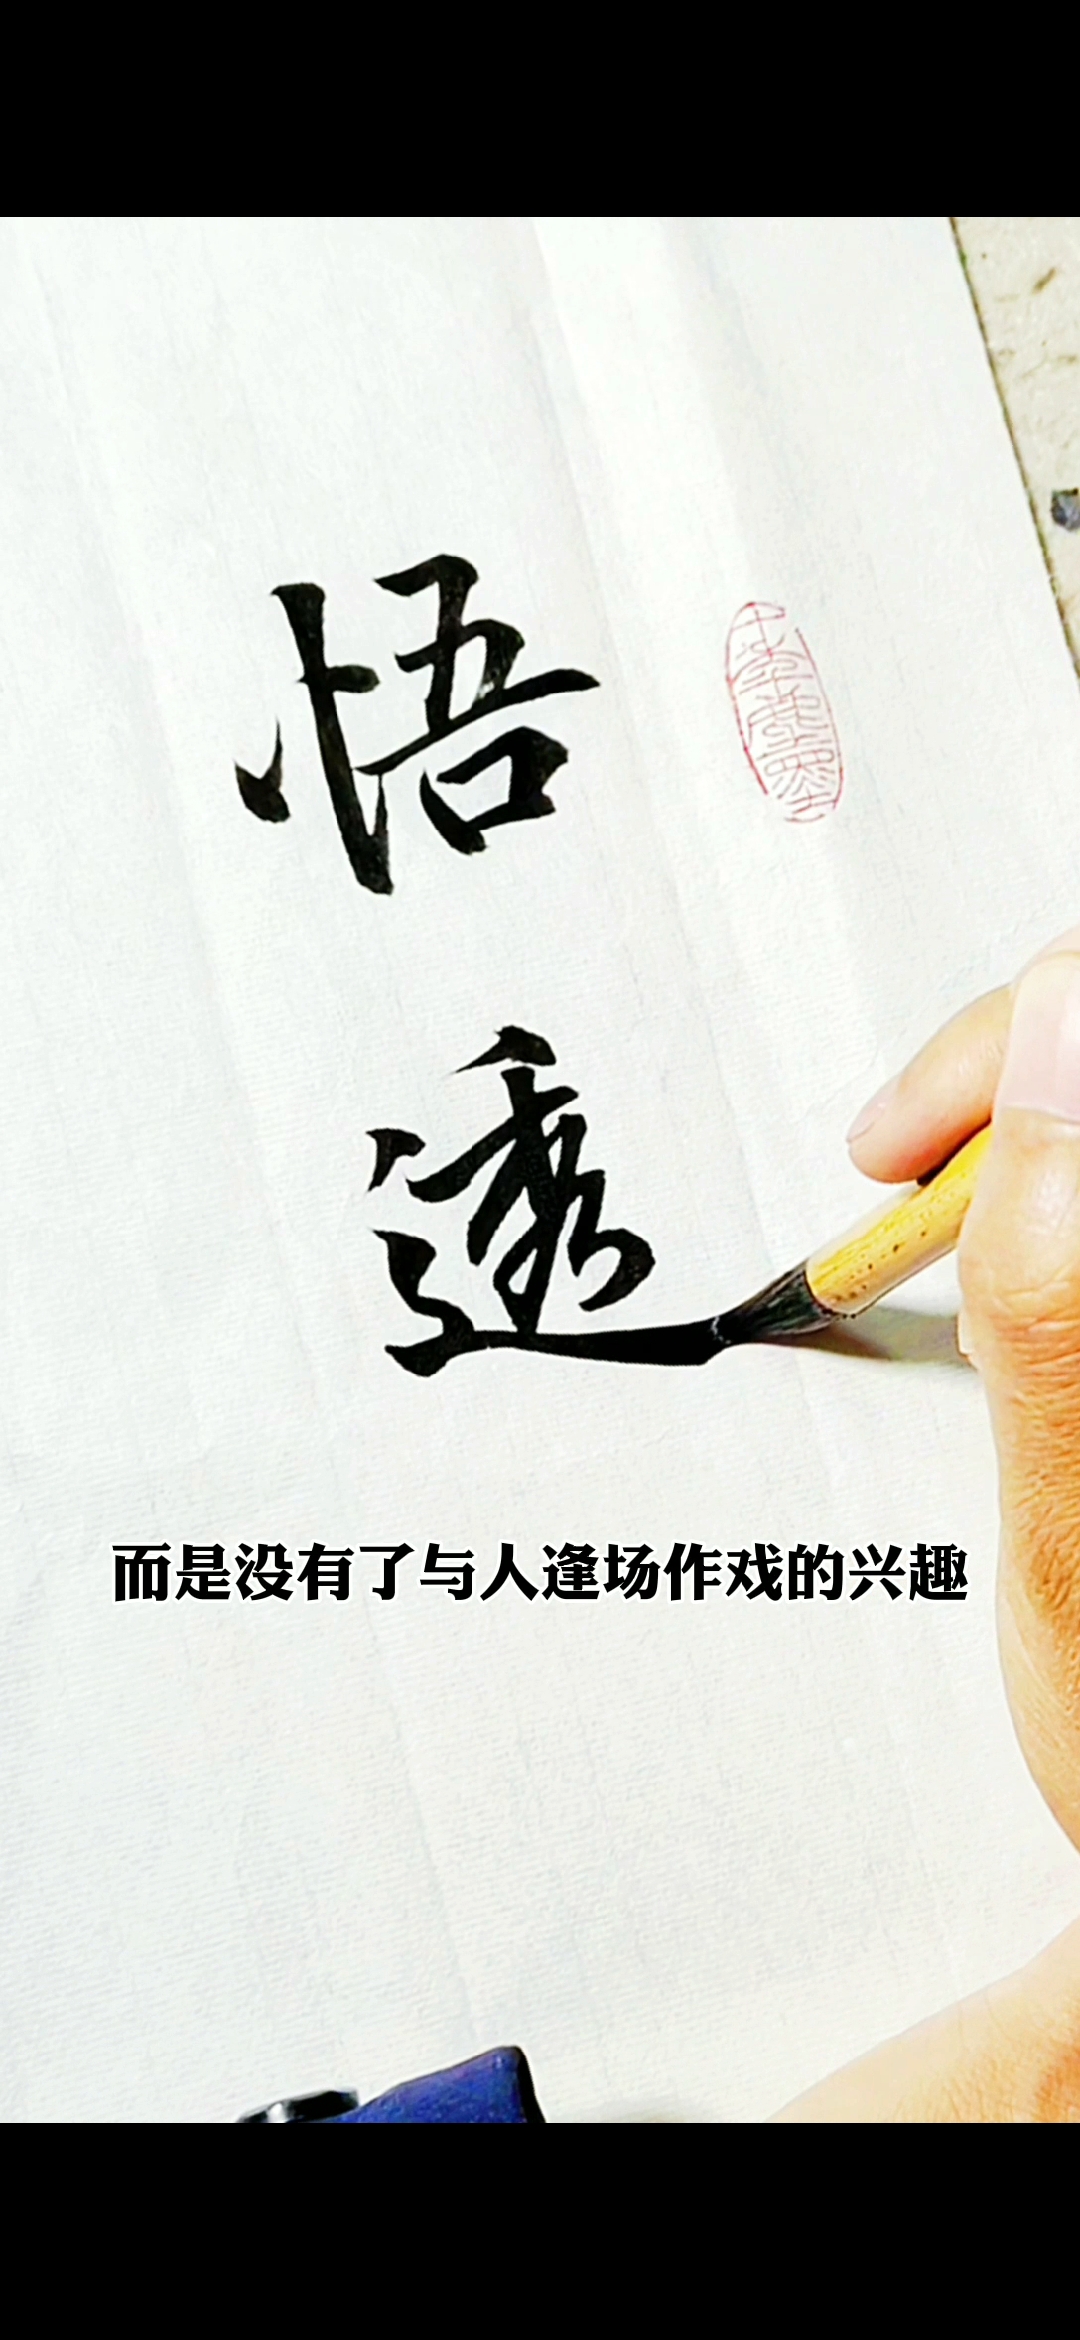 悟
透
而是没有了与人逢场作戏的兴趣